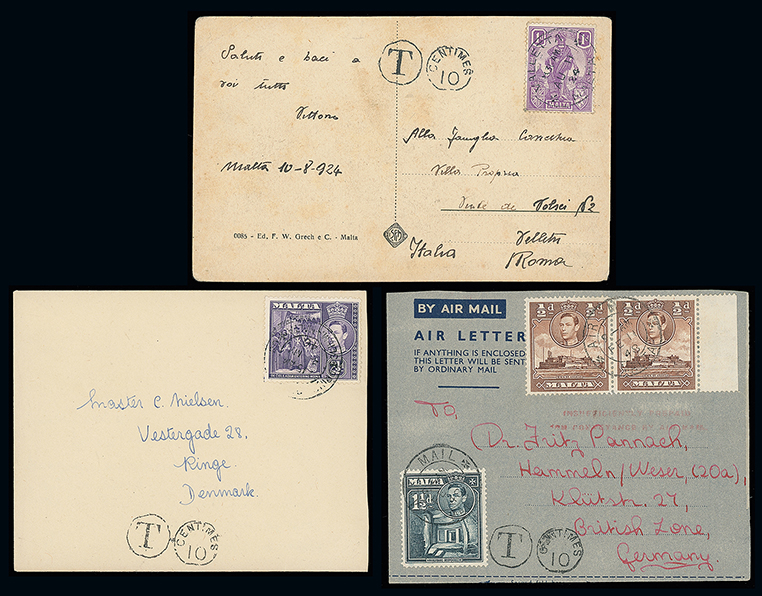 Saluti e baci a
voi tutti
Vittorio
Malta 10-8-924
0085 - Ed, F. W. Grech e C. - Malta
T
CENTIMES
10
1d 1d
VALLETTA
MALTA
Alla Famiglia
Villa Propria
de Volsci 52
Velletri
Roma
Italia
MALTA
Master C. Nielsen.
Vestergade 28.
Ringe
Denmark.
T
CENTIMES
10
BY AIR MAIL
AIR LETTER
IF ANYTHING IS ENCLOSED
THIS LETTER WILL BE SENT
BY ORDINARY MAIL
½d ½d
MALTA
½d ½d
MALTA
AIR
INSUFFICIENTLY PREPAID
FOR
To,
Dr. Fritz Pannach,
Hammeln/Weser, (20a),
Klütstr. 27,
British Zone,
Germany.
MAIL
MALTA
1½d
T
CENTIMES
10